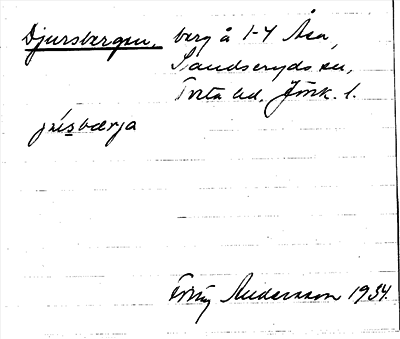 Djursbergen, berg å 1-4 Åsa,
Sandseryds sn,
Tveta hd, Jönk. l.
jusbærja
Andersson 1934.